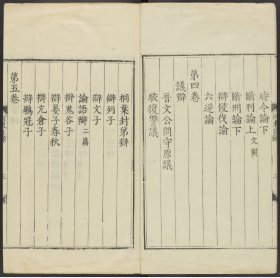 時令論下
斷刑論上文闕
斷刑論下
辯侵伐論
六逆論
第四卷
議辯
晉文公問守原議
駮復讐議
桐葉封弟辯
辯列子
辯文子
論語辯二篇
辯鬼谷子
辯晏子春秋
辯亢倉子
辯鶡冠子
第五卷